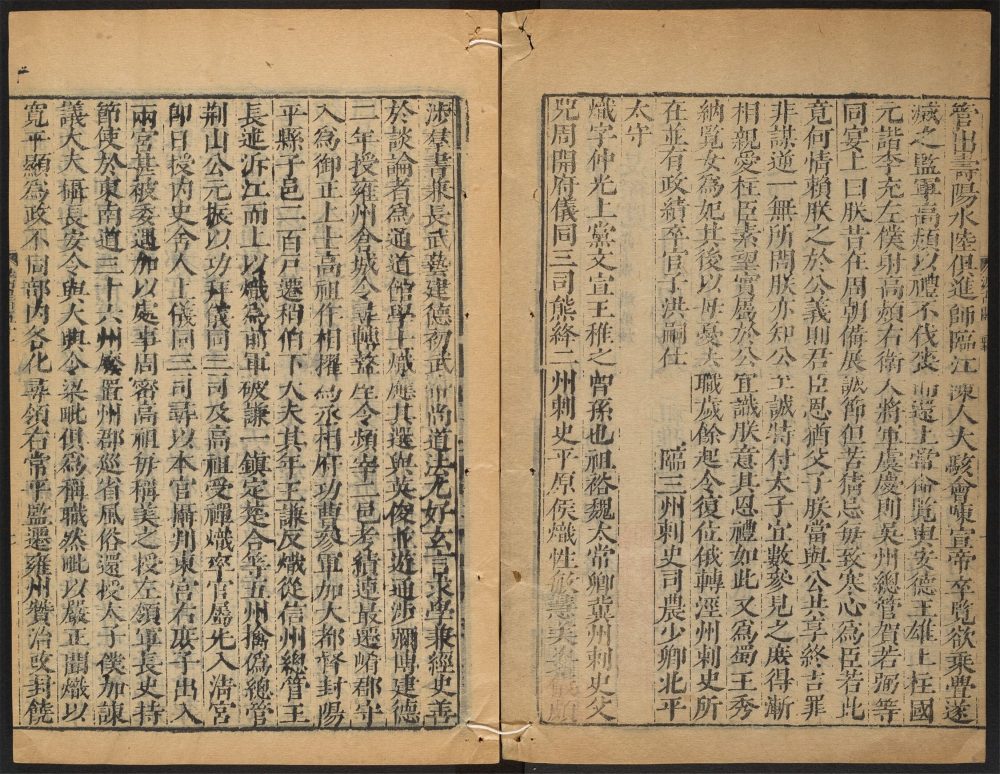 管出壽陽水陸俱進師臨江陳人大駭會陳宣帝卒覽欲乘釁遂
滅之監軍高熲以禮不伐喪而還上常命覽與安德王雄上柱國
元諧李充左僕射高熲右衛大將軍虞慶則吳州總管賀若弼等
同宴上曰朕昔在周朝備展誠節但苦猜忌每致寒心為臣若此
竟何情賴朕之於公義則君臣恩猶父子朕當與公共享終吉罪
非謀逆一無所問朕亦知公至誠特付太子宜數參見之庶得漸
相親愛柱臣素望實屬於公宜識朕意其恩禮如此又為蜀王秀
納覽女為妃其後以母憂去職歲餘起令復位俄轉涇州刺史所
在並有政績卒官子洪嗣仕　臨三州刺史司農少卿北平
太守
熾字仲光上黨文宣王稚之曾孫也祖裕魏太常卿冀州刺史父
兕周開府儀同三司熊絳二州刺史平原侯熾性敏慧美姿容頗
涉羣書兼長武藝建德初武帝尚道法尤好玄言求學兼經史善
於談論者為通道館學士熾應其選與英俊並遊通涉彌博建德
二年授雍州倉城令尋轉盩厔令頻宰二邑考績連最遷崤郡守
入為御正上士高祖作相擢為丞相府功曹參軍加大都督封陽
平縣子邑二百戶遷稍伯下大夫其年王謙反熾從信州總管王
長述泝江而上以熾為前軍破謙一鎮定楚合等五州擒偽總管
荊山公元振以功拜儀同三司及高祖受禪熾率官屬先入清宮
即日授內史舍人上儀同三司尋以本官攝判東宮右庶子出入
兩宮甚被委遇加以處事周密高祖每稱美之授左領軍長史持
節使於東南道三十六州廢置州郡巡省風俗還授太子僕加諫
議大夫攝長安令與大興令梁毗俱為稱職然毗以嚴正聞熾以
寬平顯為政不同部內各化尋領右常平監遷雍州贊治改封饒